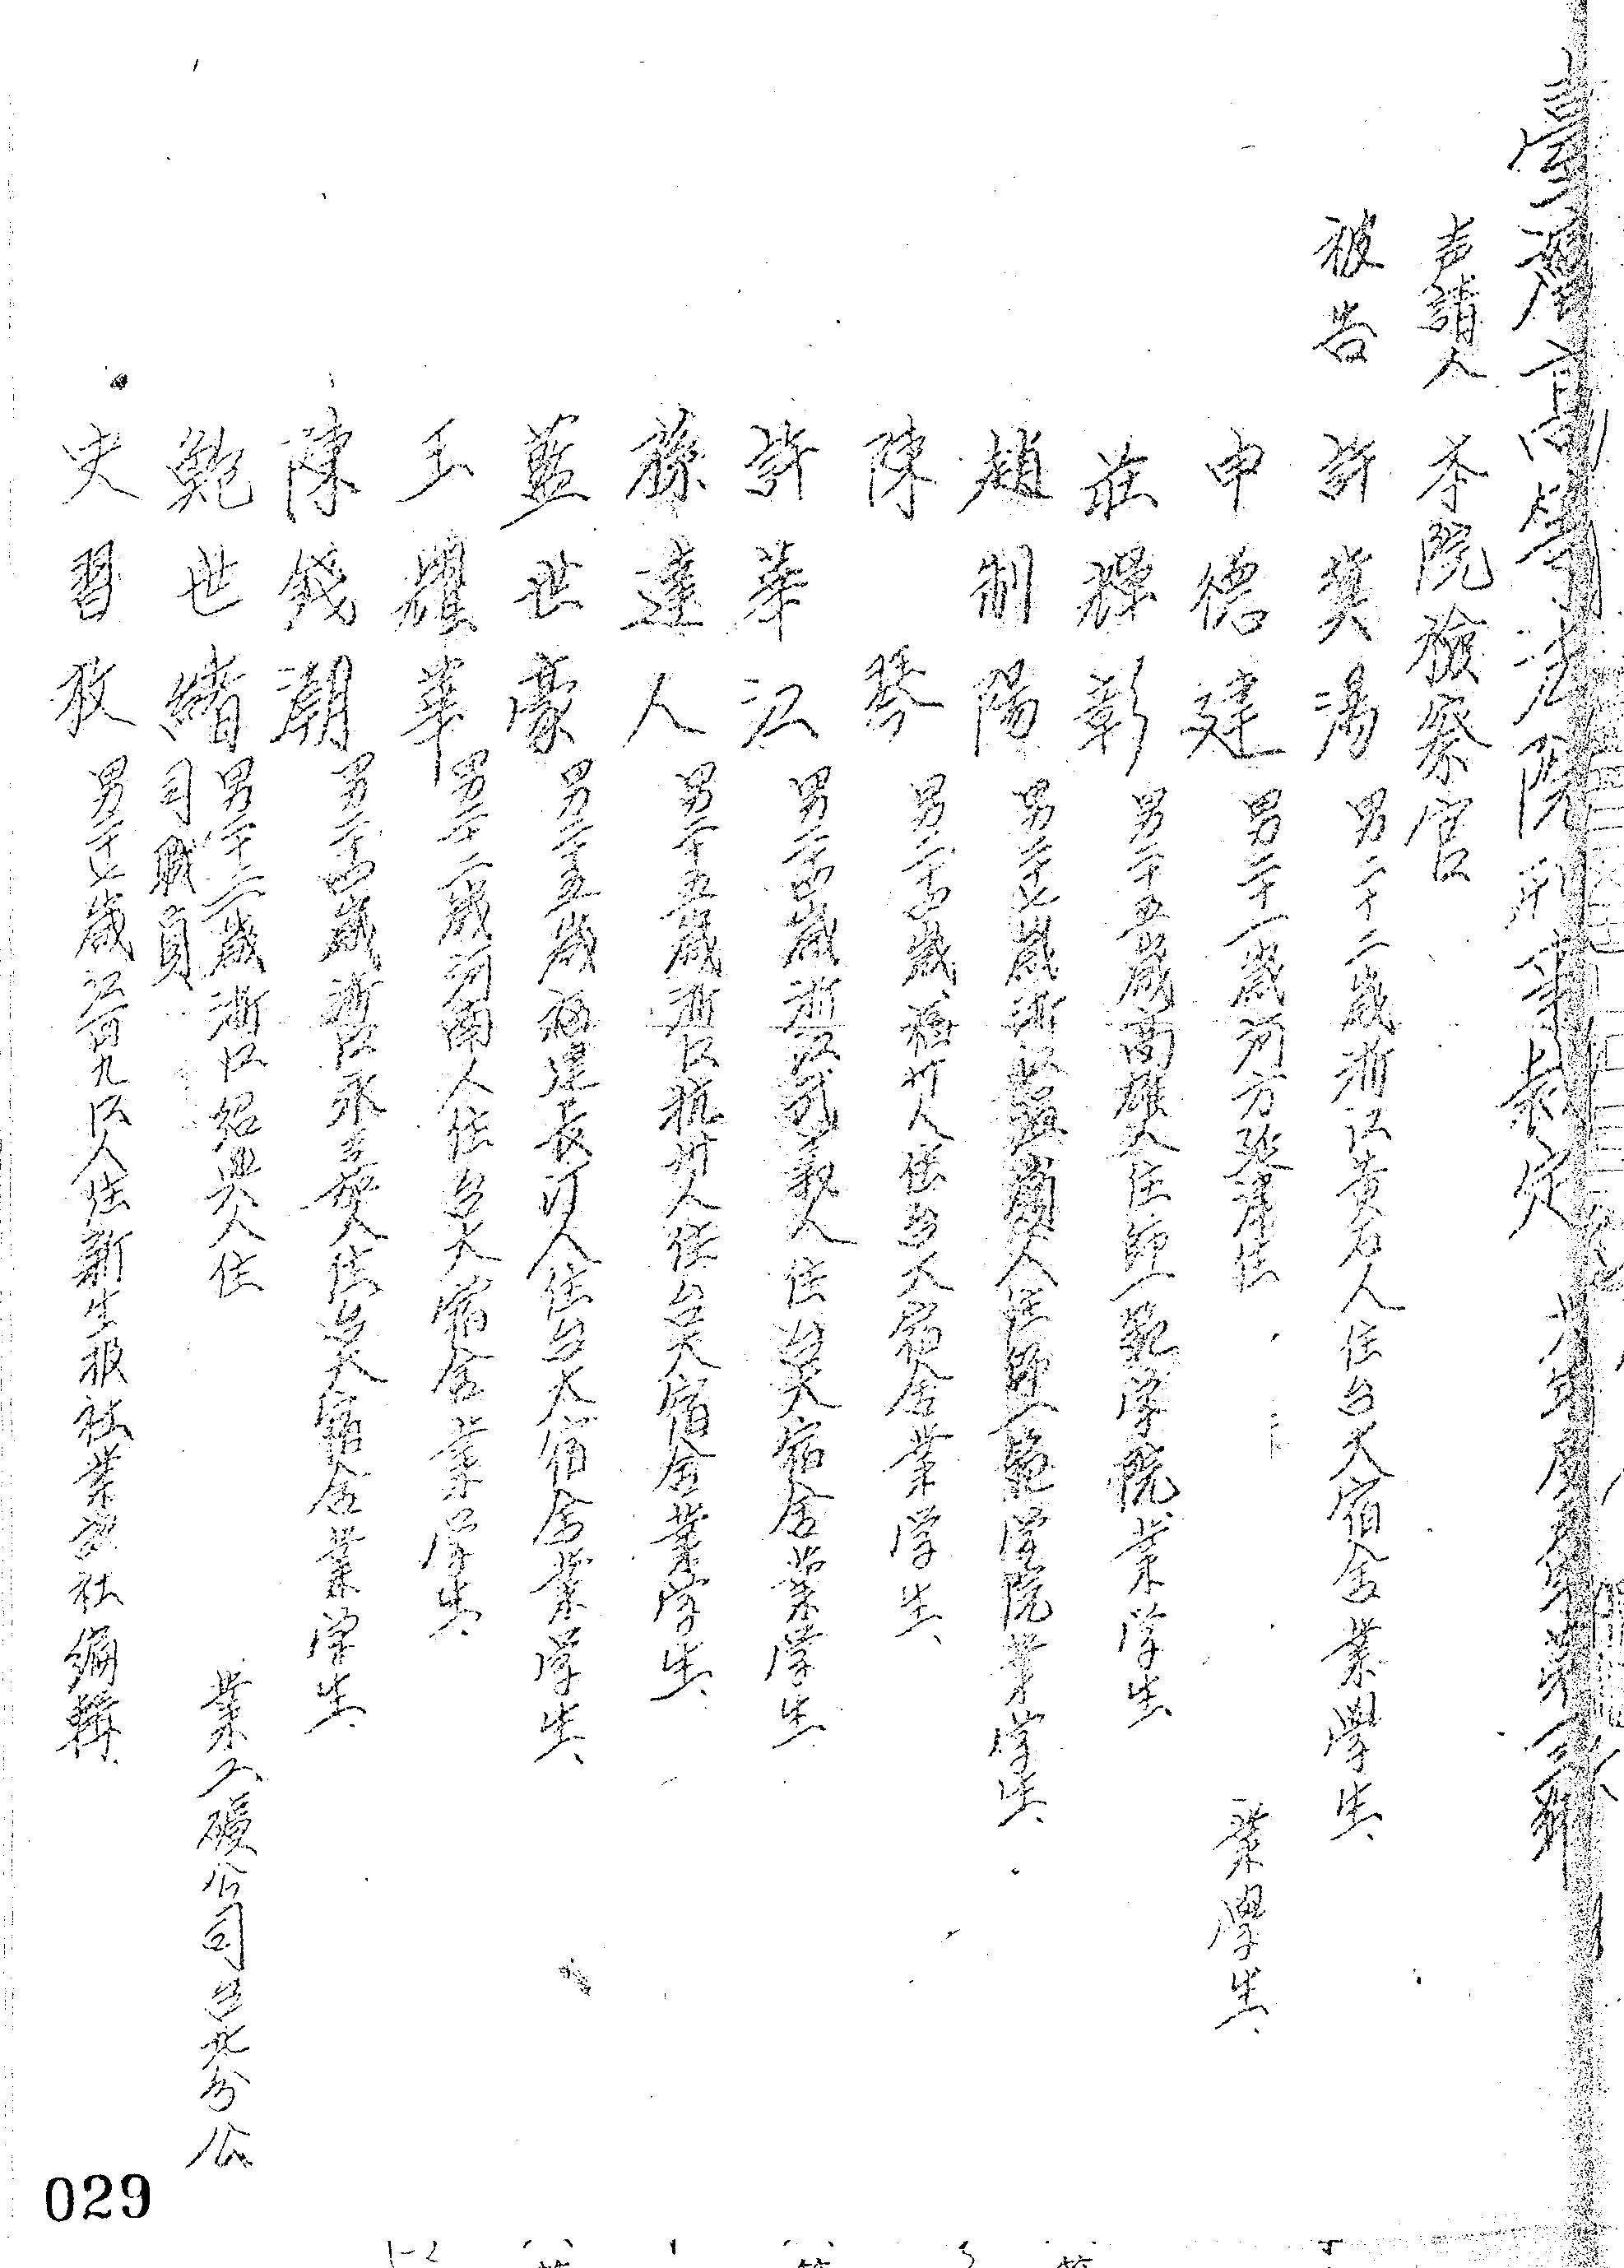 臺灣高等法院刑事裁定
声請人 本院檢察官
被告 許冀湯 男二十二歲浙江黄岩人住台大宿舍業學生、
申德建 男二十一歲河 業學生、
莊輝彰 男二十五歲高雄人住師範学院業学生
趙制陽 男二十七歲浙江 人住師範学院業学生、
陳琴 男二十四歲福州人住台大宿舍業学生、
許華江 男二十四歲浙江武義人住台大宿舍業学生
孫達人 男二十五歲浙江杭州人住台大宿舍業学生、
藍世豪 男二十五歲福建長汀人住台大宿舍業学生、
王耀華 男二十二歲河南人住台大宿舍業学生、
陳錢潮 男二十四歲浙江永嘉人住台大宿舍業学生、
鮑世緒 男二十二歲浙江紹興人住 業工礦公司台北分公
司職員
史習枚 男二十七歲江西九江人住新生报社業 社編輯
029